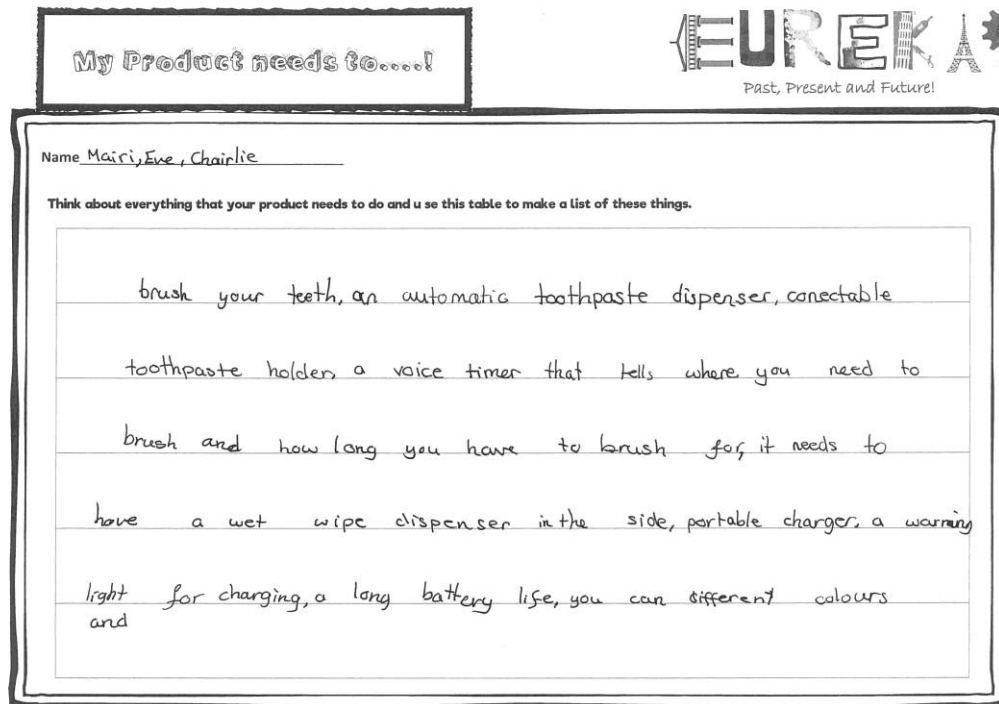 My Product needs to....!
EUREKA
Past, Present and Future!
Name Mairi, Eve, Chairlie
Think about everything that your product needs to do and u se this table to make a list of these things.
brush your teeth, an automatic toothpaste dispenser, conectable
toothpaste holder, a voice timer that tells where you need to
brush and how long you have to brush for, it needs to
have a wet wipe dispenser in the side, portable charger, a warning
light for charging, a long battery life, you can different colours
and